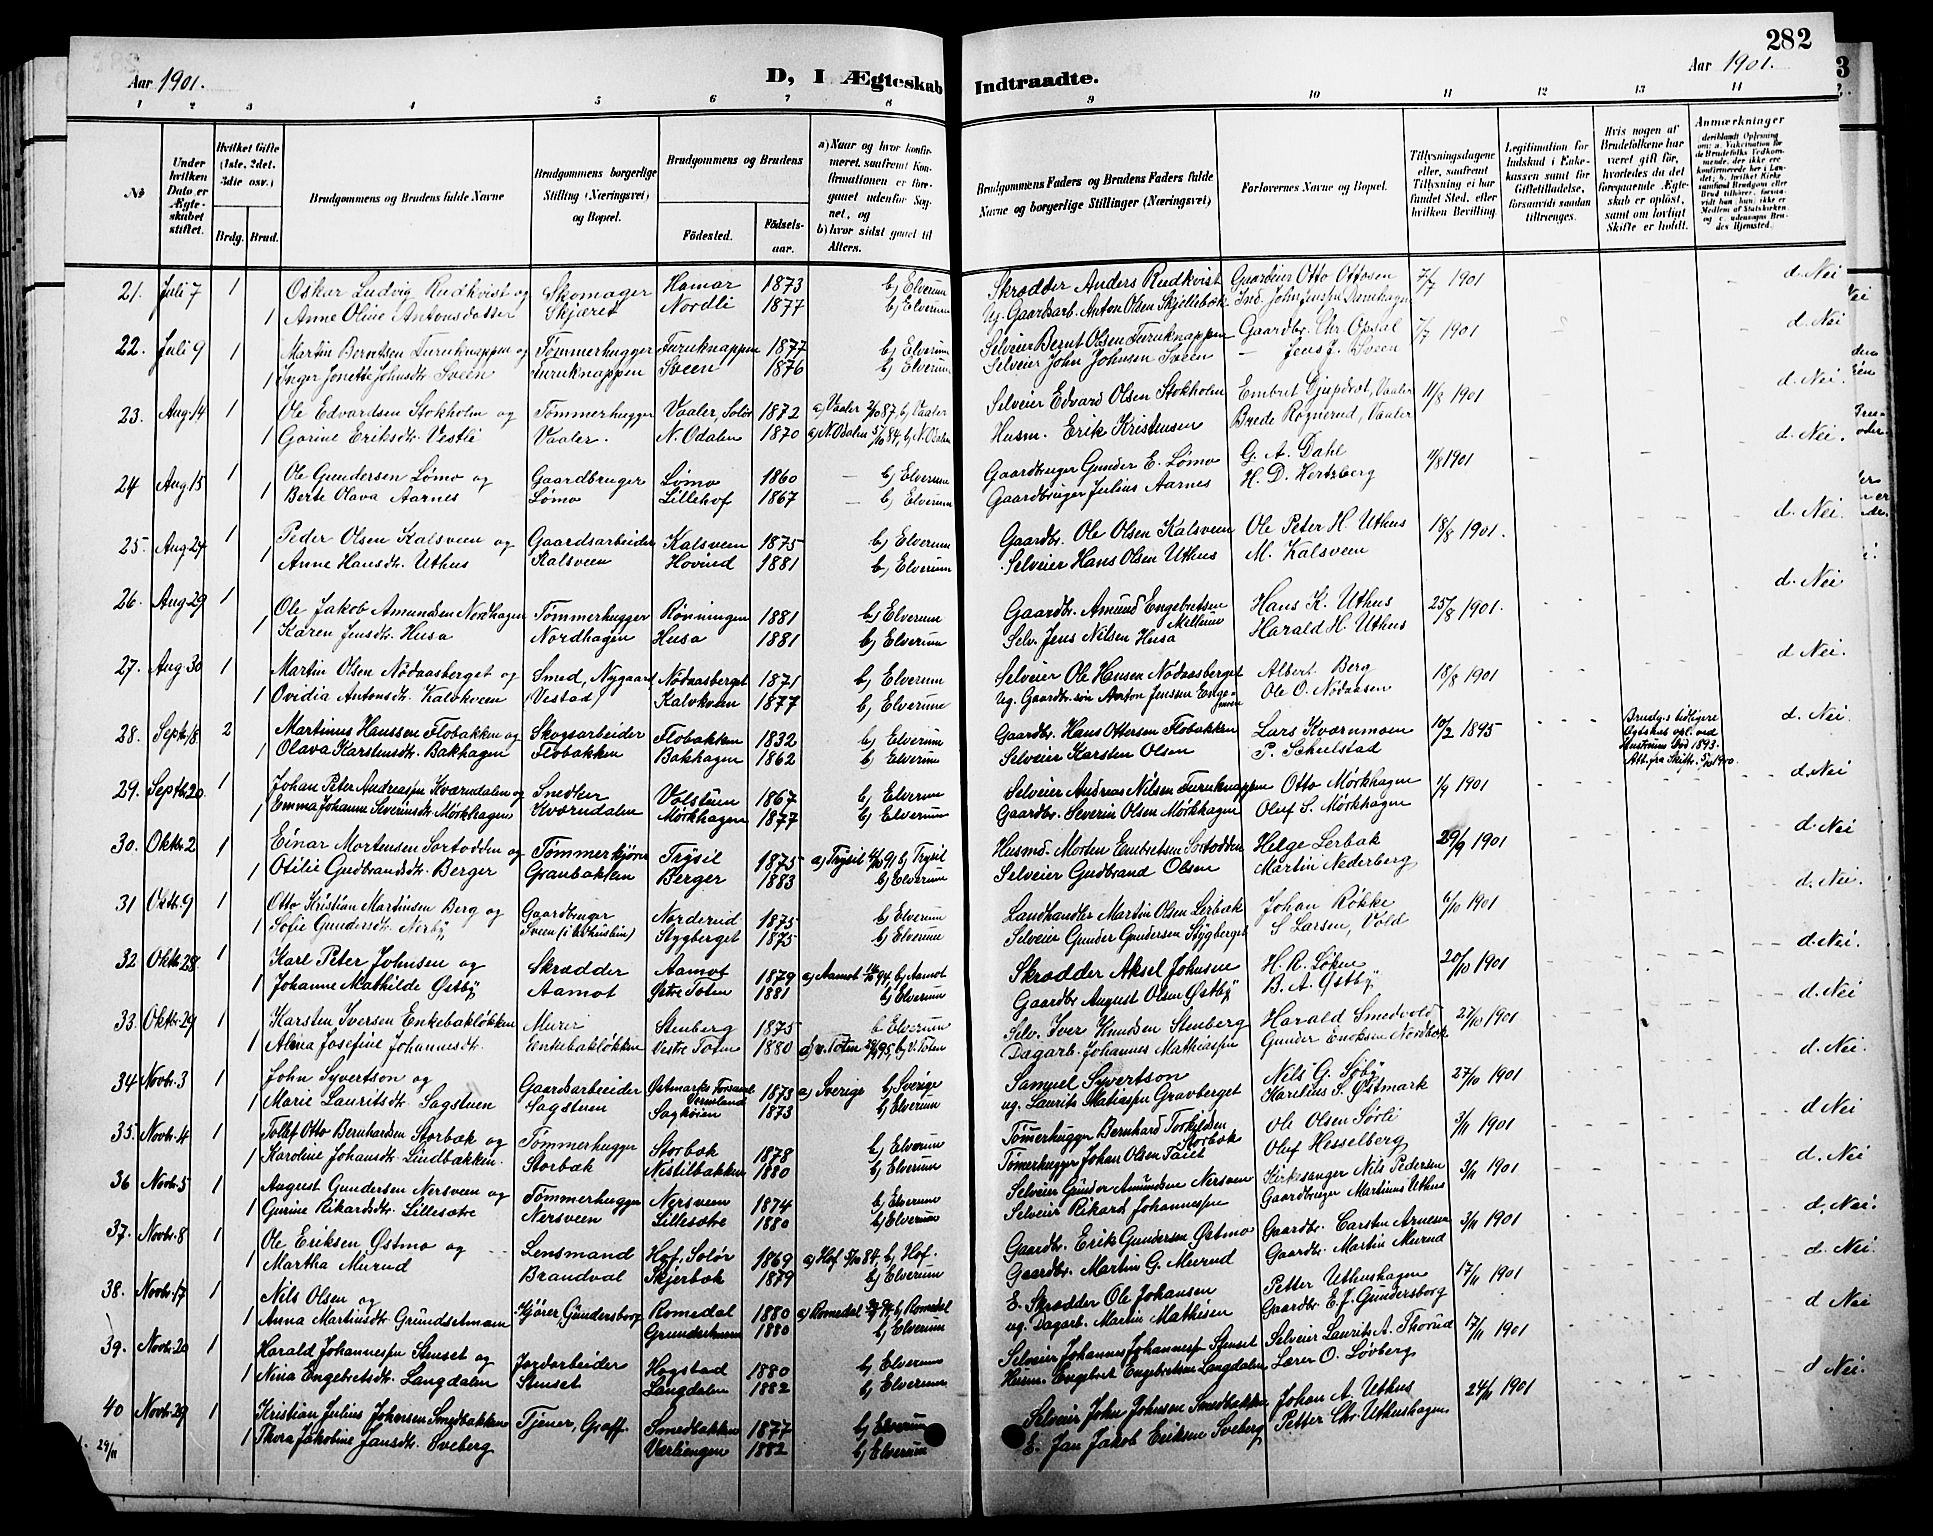 282
Aar 1901. D, I Ægteskab Indtraadte. Aar 1901.
1 2 3 4 5 6 7 8 9 10 11 12 13 14
№
Under hvilken Dato er Ægteskabet stiftet.
Hvilket Gifte (1ste, 2det, 3die osv.)
Brdg. Brud.
Brudgommens og Brudens fulde Navne
Brudgommens borgerlige Stilling (Næringsvei) og Bopæl.
Brudgommens og Brudens
Fødested. Fødselsaar.
a) Naar og hvor konfirmeret, saafremt Konfirmationen er foregaaet udenfor Sognet, og
b) hvor sidst gaaet til Alters.
Brudgommens Faders og Brudens Faders fulde Navne og borgerlige Stillinger (Næringsvei)
Forlovernes Navne og Bopæl.
Tillysningsdagene eller, saafremt Tillysning ei har fundet Sted, efter hvilken Bevilling.
Legitimation for Indskud i Enkekassen samt for Giftetilladelse, forsaavidt saadan tiltrænges.
Hvis nogen af Brudefolkene har været gift før, hvorledes da det foregaaende Ægteskab er opløst, samt om lovligt Skifte er holdt.
Anmærkninger
21. Juli 7 1 Oskar Ludvig Rudkvist og Skomager Hamar 1873 b) Elverum Skrædder Anders Rudkvist Gaardeier Otto Ottosen 7/7 1901 d. Nei
1 Anne Oline Antonsdatter Skjæret Nordli 1877 b) Elverum Ug. Gaardarb. Anton Olsen Skjellebæk
22. Juli 9 1 Martin Berntsen Furuknappen og Tømmerhugger Furuknappen 1877 b) Elverum Selveier Bernt Olsen Furuknappen Gaardbr. Chr. Opsal 7/7 1901 d. Nei
1 Inger Jonette Johnsdtr. Sveen Furuknappen Sveen 1876 b) Elverum Selveier John Johnsen Sveen — Jens J. Sveen
23. Aug. 14 1 Ole Edvardsen Stokholm og Tømmerhugger Vaaler, Solør 1872 a) Vaaler 2/10 87, b) Vaaler Selveier Edvard Olsen Stokholm Embret Djupdal, Vaaler 11/8 1901 d. Nei
1 Gorine Eriksdtr. Vestli Vaaler. N. Odalen 1870 a) N. Odalen 5/10 84, b) N. Odalen Husm. Erik Kristensen Brede Rognerud, Vaaler
24 Aug. 15 1 Ole Gundersen Lømo og Gaardbruger Lømo 1860 — b) Elverum Gaardbruger Gunder E. Lømo G. A. Dahl 11/8 1901 d. Nei.
1 Berte Olava Aarnes Lømo Lillehof 1867 — b) Elverum Gaardbruger Julius Aarnes H. D. Hertzberg
25. Aug. 24 1 Peder Olsen Kalsveen og Gaardsarbeider Kalsveen 1875 b) Elverum Gaardbr. Ole Olsen Kalsveen Ole Peter H. Uthus 18/8 1901. d. Nei
1 Anne Hansdtr. Uthus Kalsveen Hovind 1881 b) Elverum Selveier Hans Olsen Uthus M. Kalsveen
26. Aug. 29 1 Ole Jakob Amundsen Nordhagen Tømmerhugger Rønningen 1881 b) Elverum Gaardbr. Amund Engebretsen Hans K. Uthus 25/8 1901. d. Nei
1 Karen Jensdtr. Husa Nordhagen Husa 1881 b) Elverum Selv. Jens Nilsen Husa Harald H. Uthus
27. Aug 30 1 Martin Olsen Nødaasberget og Smed, Nygaard Nødaasberget 1871 b) Elverum Selveier Ole Hansen Nødaasberget Albert Berg 18/8 1901 d. Nei.
1 Ovidia Antonsdtr. Kalvkveen (Vestad) Kalvkveen 1877 b) Elverum Ug. Gaardbr. søn Anton Jenssen Ole O. Nødaasen
28. Sept. 18. 2 Martinus Hanssen Flobakken og Skogsarbeider Flobakken 1832 b) Elverum Gaardbr. Hans Ottersen Flobakken Lars Kværnmoen 10/2 1895 Brudg.s tidligere Egteskab opl. ved Hustruens Død 1893. Att. fra Skifter. d. Nei.
1 Olava Karstensdtr. Bakhagen Flobakken Bakhagen 1862 b) Elverum Selveier Karsten Olsen P. Schulstad
29. Septb. 20. 1 Johan Peter Andreassen Kværndalen og Snedker Volstuen 1867 b) Elverum Selveier Andreas Nilsen Furuknappen Otto Mørkhagen 1/9 1901 d. Nei
1 Emma Johanne Severinsdtr. Mørkhagen Kværndalen Mørkhagen 1877 b) Elverum Gaardbr. Severin Olsen Mørkhagen Oluf S. Mørkhagen
30. Oktb. 2 1 Einar Mortensen Sortodden og Tømmerkjører Trysil 1875 a) Trysil 91 b) Trysil Husmd. Morten Embretsen Sortodden Helge Lerbak 29/9 1901 d. Nei
1 Otilie Gudbrandsdtr. Berger Granbakken Berger 1883 b) Elverum Selveier Gudbrand Olsen Martin Nederberg
31 Oktb. 9 1 Otto Kristian Martinsen Berg og Gaardbruger Norderud 1875 b) Elverum Landhandler Martin Olsen Lerbak Johan Røkke 6/10 1901 d. Nei.
1 Sofie Gundersdtr. Norby Sveen Stygberget 1875 b) Elverum Selveier Gunder Gundersen Stygberget S. Larsen, Vold
32 Oktb. 28 1 Karl Peter Johnsen og Skrædder Aamot 1879 a) Aamot 94, b) Aamot Skrædder Aksel Johnsen H. R. Løken 20/10 1901 d. Nei.
1 Johanne Mathilde Østby Aamot Østre Toten 1881 b) Elverum Gaardbr August Olsen Østby B. A. Østby
33. Oktb. 29 1 Karsten Iversen Enkebakløkken Murer Stenberg 1875 b Elverum Selv. Iver Knudsen Stenberg Harald Smedvold 27/10 1901 d. Nei
1 Alma Josefine Johannesdtr. Enkebakløkken Vestre Toten 1880 a) v. Toten 95, b) V. Toten Dagarb. Johannes Mathiassen Gunder Enoksen Nordbæk
34 Novb. 3 1 John Syvertson og Gaardsarbeider Østmarks Forsaml. Vermland 1873 a) Sverige b) Sverige Samuel Syvertson Nils G. Søby 27/10 1901 d. Nei
1 Marie Lauritsdtr. Sagstuen Sagstuen Sagkoien 1873 b) Elverum ug. Laurits Matiassen Gravberget Karelius S. Østmark
35. Novb. 4 1 Tollef Otto Bernhardsen Storbæk og Tømmerhugger Storbæk 1878 b) Elverum Tømerhugger Bernhard Torkildsen Storbæk Ole Olsen Sørli 3/11 1901 d Nei
1 Karoline Johansdtr. Lindbækken Storbæk Nistilbakken 1880 b) Elverum Tømerhugger Johan Olsen Oluf Hesselberg
36 Novb. 5 1 August Gundersen Nersveen og Tømmerhugger Nersveen 1874 b) Elverum Selveier Gunder Amundsen Nersveen Kirkesanger Nils Pedersen 3/11 1901 d. Nei
1 Gurine Rikardsdtr. Lillesætre Nersveen Lillesætre 1880 b) Elverum Selveier Rikard Johannessen Gaardbruger Martinus Uthus
37. Novb. 8 1 Ole Eriksen Østmo og Lensmand Hof, Solør 1869 a) Hof 5/10 84, b) Hof. Gaardbr. Erik Gundersen Østmo Gaardbr. Carsten Arnesen 3/11 1901 d. Nei
1 Martha Murud Brandval Skjerbæk 1879 b) Elverum Gaardbr. Martin G. Murud Gaardbr. Martin Murud
38. Novb. 17 1 Nils Olsen og Kjører, Gundersborg Romedal 1880 a) Romedal 94 b) Romedal E. Skrædder Ole Johansen Petter Uthushagen 17/11 1901 d. Nei
1 Anna Martinsdtr. Grundsetmoen Grundsetmoen 1880 b) Elverum ug. Dagarb. Martin Mathisen Gaardbr. E. J. Gundersborg
39. Novb. 20 1 Harald Johannessen Stenset og Jordarbeider Hagstad 1880 b) Elverum Selveier Johannes Johannessen Stenset Selveier Laurits A. Thorud 17/11 1901 d. Nei
1 Nina Engebretsdtr. Langdalen Stenset Langdalen 1882 b) Elverum Husm. Engebret Engebretsen Langdalen Lærer O. Løvberg
40 Novb. 29 1 Kristian Julius Johnsen Smedbakken Tjener, Graff. Smedbakken 1877 b) Elverum Selveier John Johnsen Smedbakken Johan A. Uthus 24/11 1901 d Nei.
29/11 1 Thora Jakobine Jansdtr. Sveberg Værliengen 1882 b) Elverum E. Jan Jakob Eriksen Sveberg Petter Chr. Uthushagen